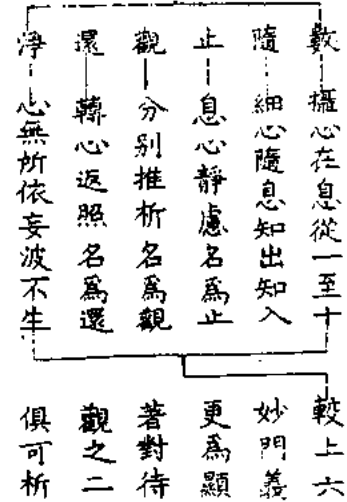 數 攝心在息從一至十
隨 細心隨息知出知入
止 息心靜慮名為止
觀 分别推析名為觀
還 轉心返照名為還
淨 心無所依妄波不生
較上六
妙門義
更為顯
著對待
觀之二
俱可析